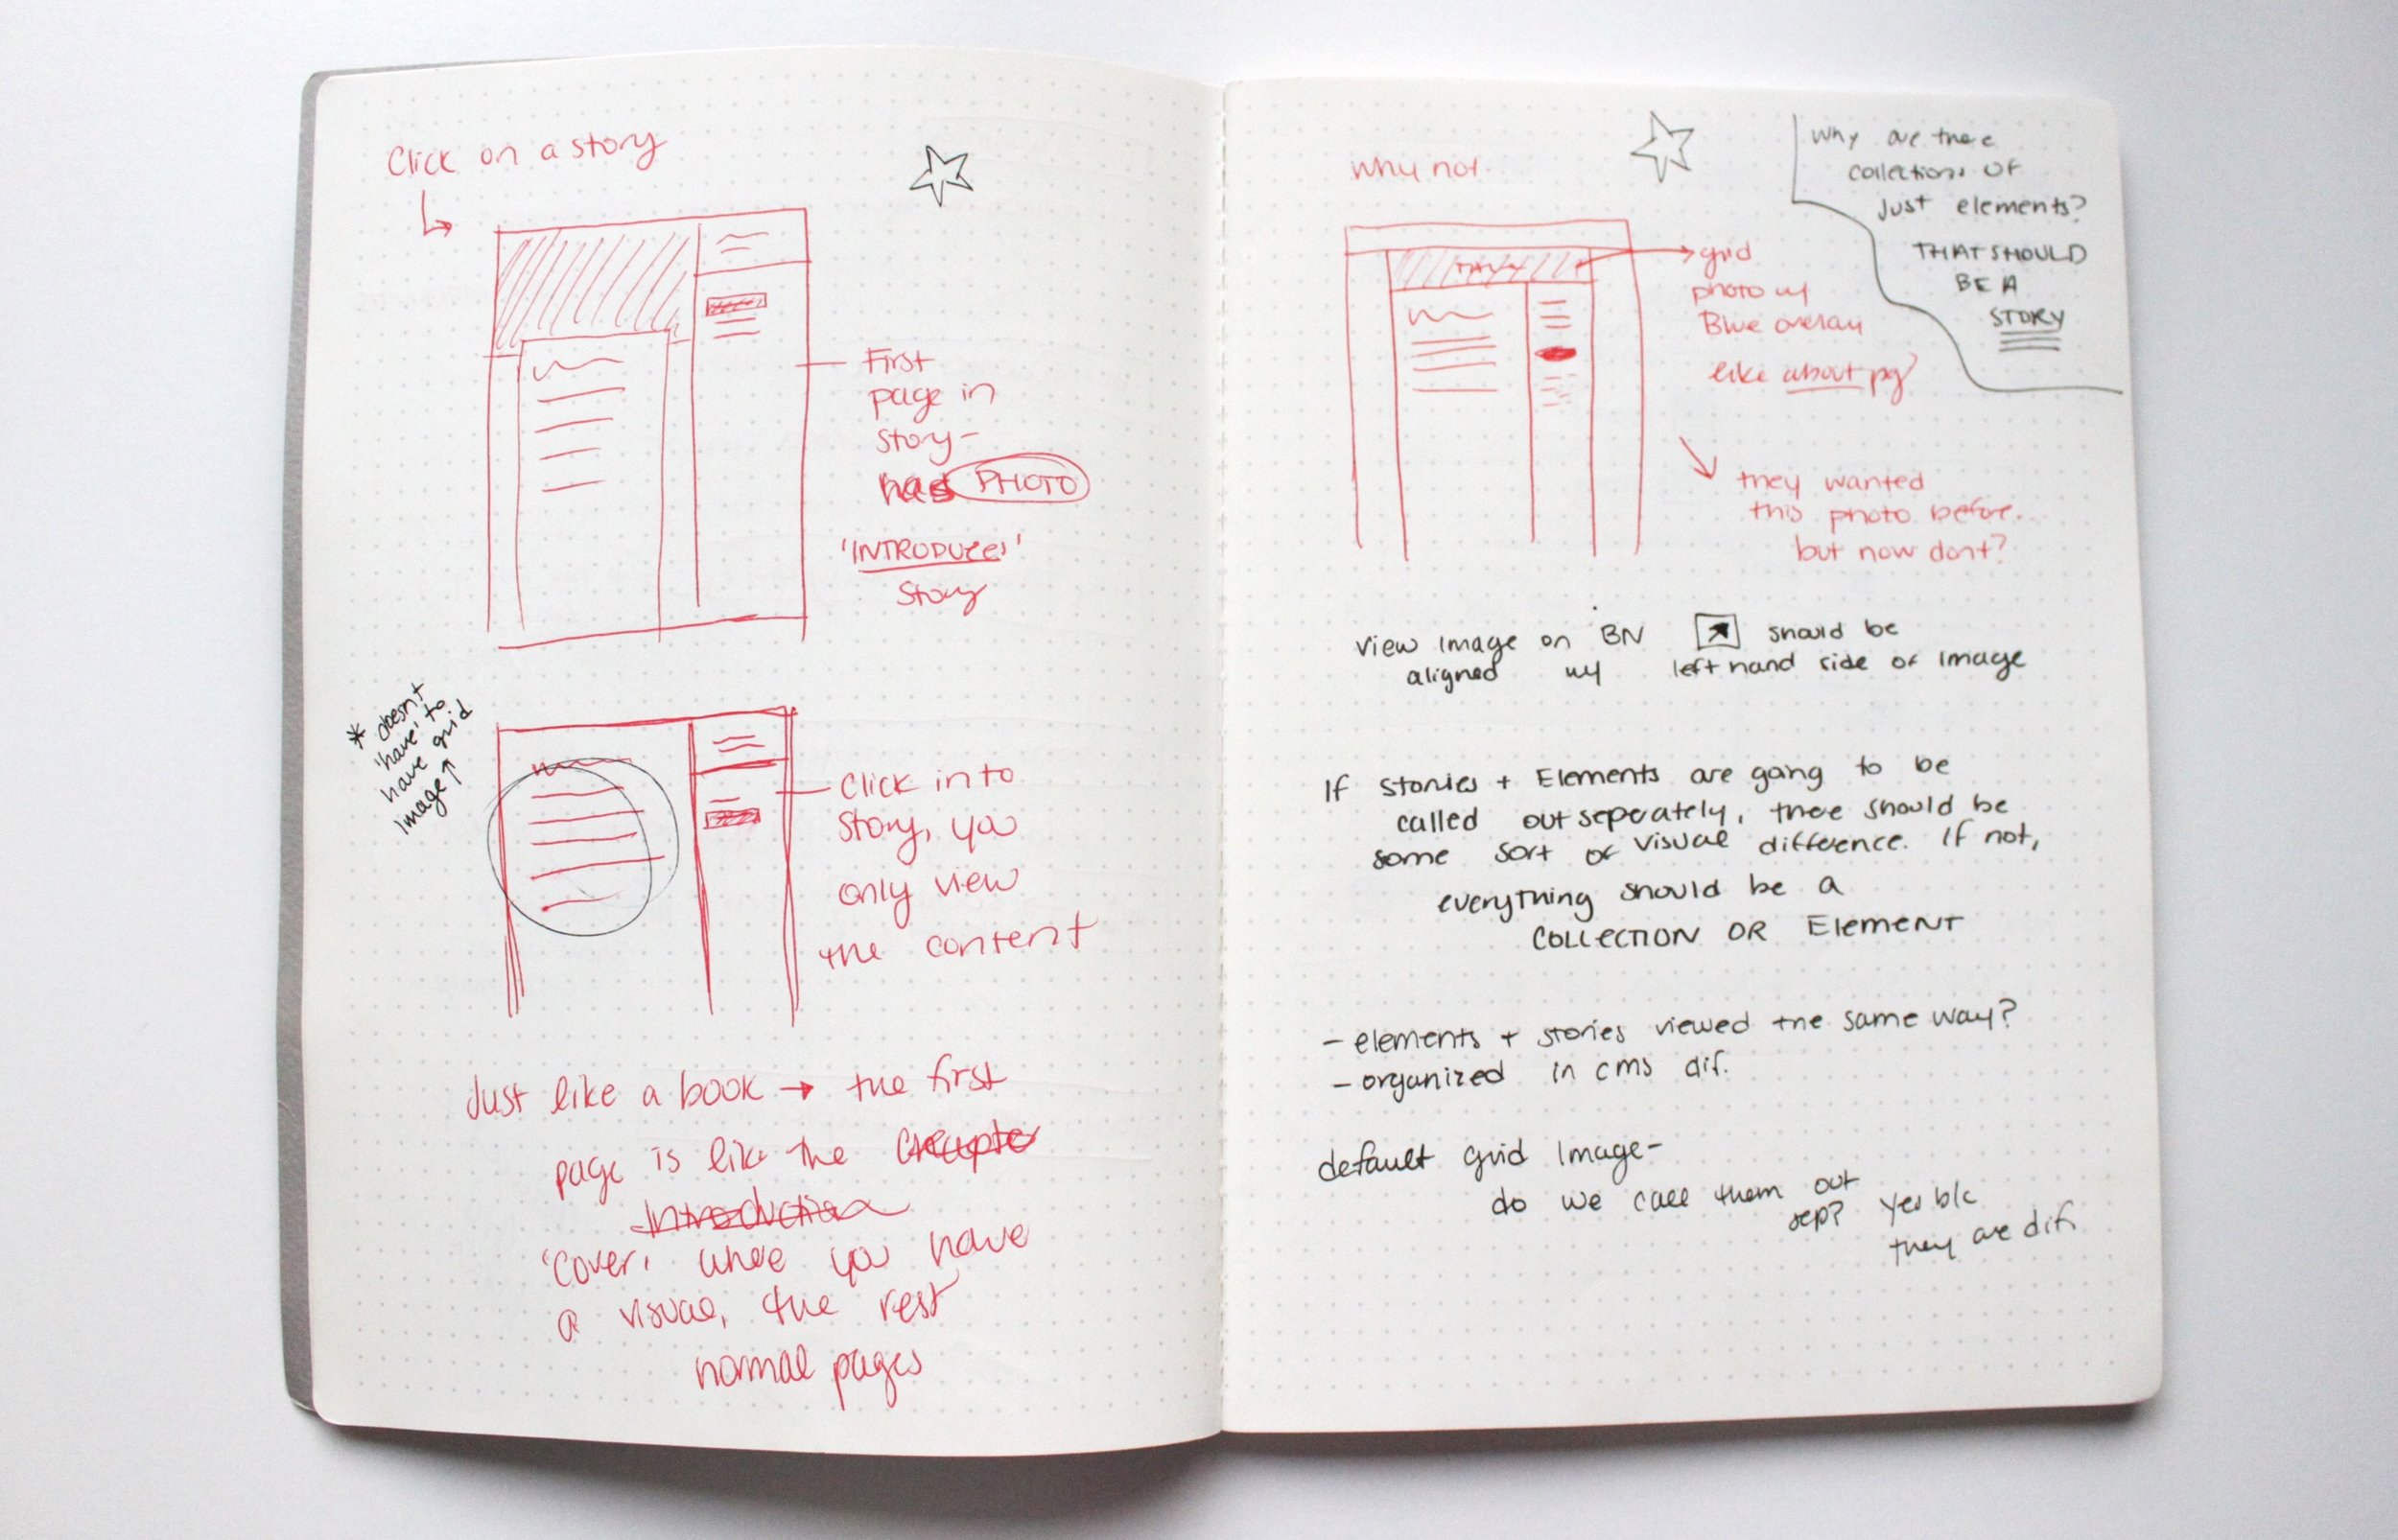 Click on a story
First
page in
story-
has PHOTO
'INTRODUCES'
Story
* doesn't
'have' to
have grid
image
Click into
story, you
only view
the content
Just like a book → the first
page is like the
Introduction
'Cover' where you have
a visual, the rest
normal pages
why not
grid
photo w/
Blue overlay
like about pg?
they wanted
this photo before..
but now dont?
Why are there
collections of
Just elements?
THAT SHOULD
BE A
STORY
view image on BN should be
aligned w/ left hand side of image
If stories + Elements are going to be
called out seperately, there should be
some sort of visual difference. If not,
everything should be a
COLLECTION OR Element
- elements + stories viewed the same way?
- organized in cms dif.
default grid image-
do we call them out
sep? yes b/c
they are dif.